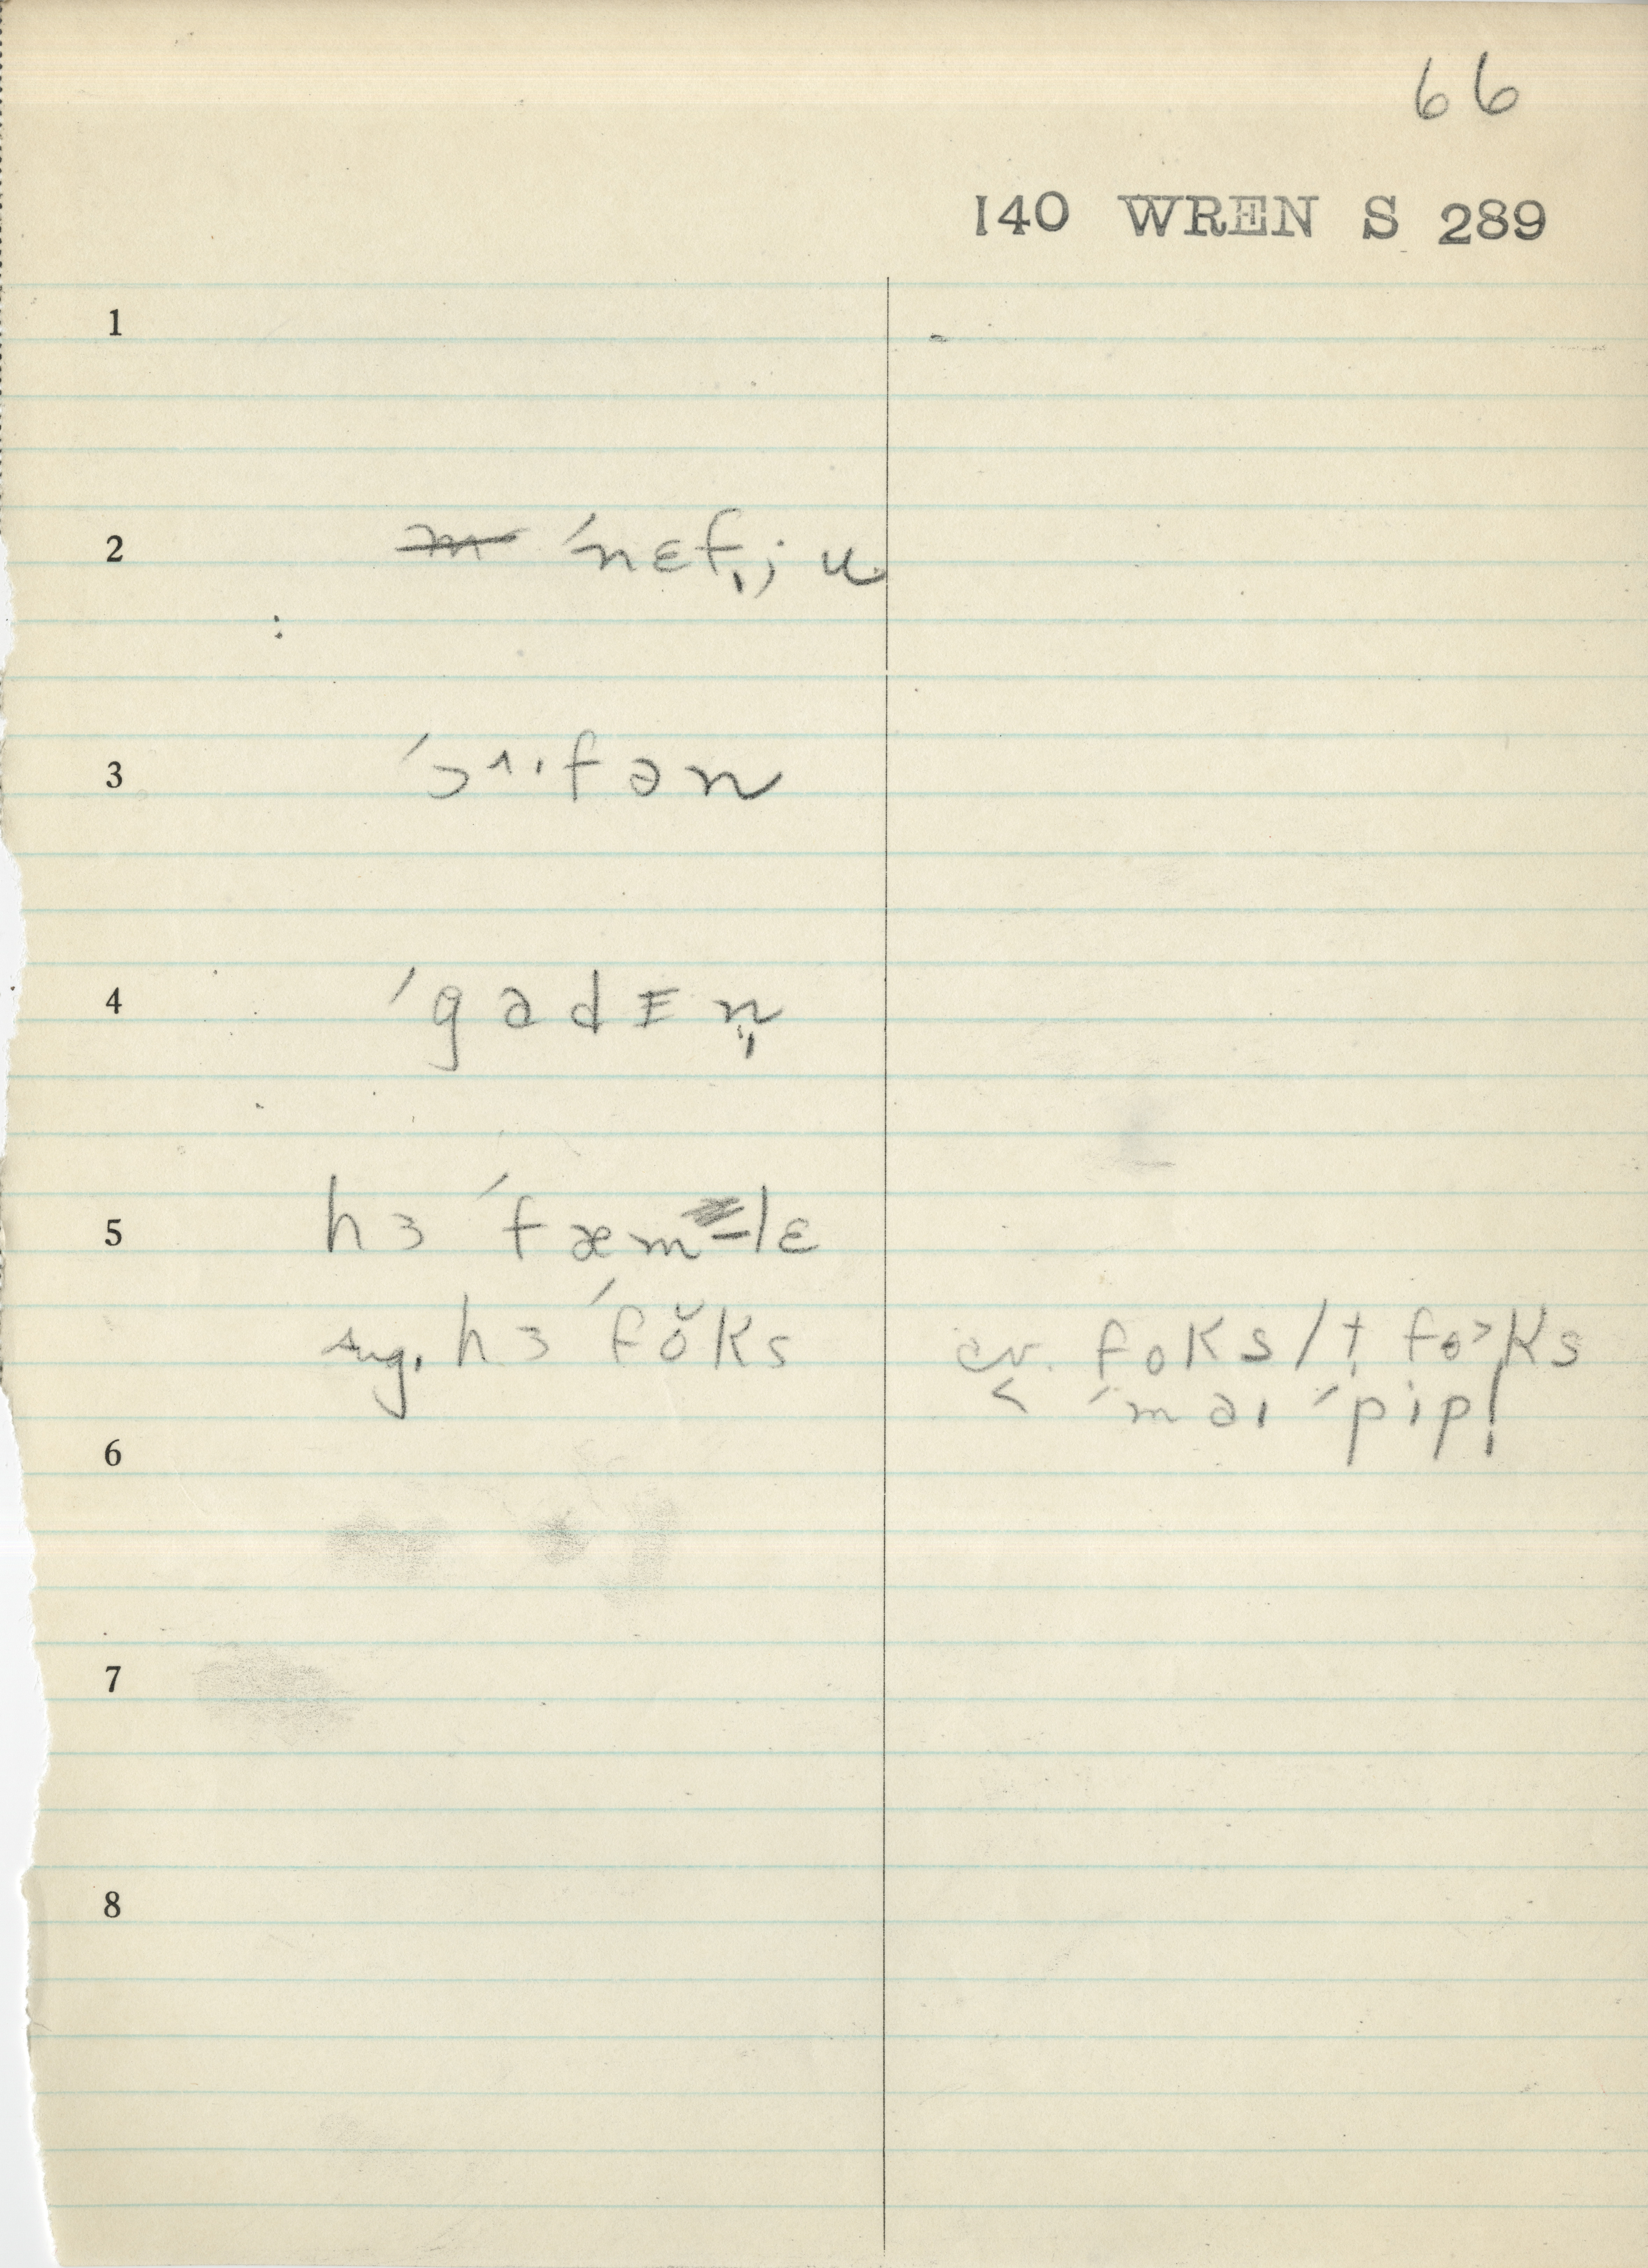 66
140 WREN S 289
1
2 ˊnɛf̩ju
3 ˊɔ^ˈfən
4 ˊgadEn̩
5 hɜ ˊfæm-lɛ
sug. hɜ ˊfŏks cv. foks/t fo>ks
< ˊmaɪ ˊpipl̩
6
7
8